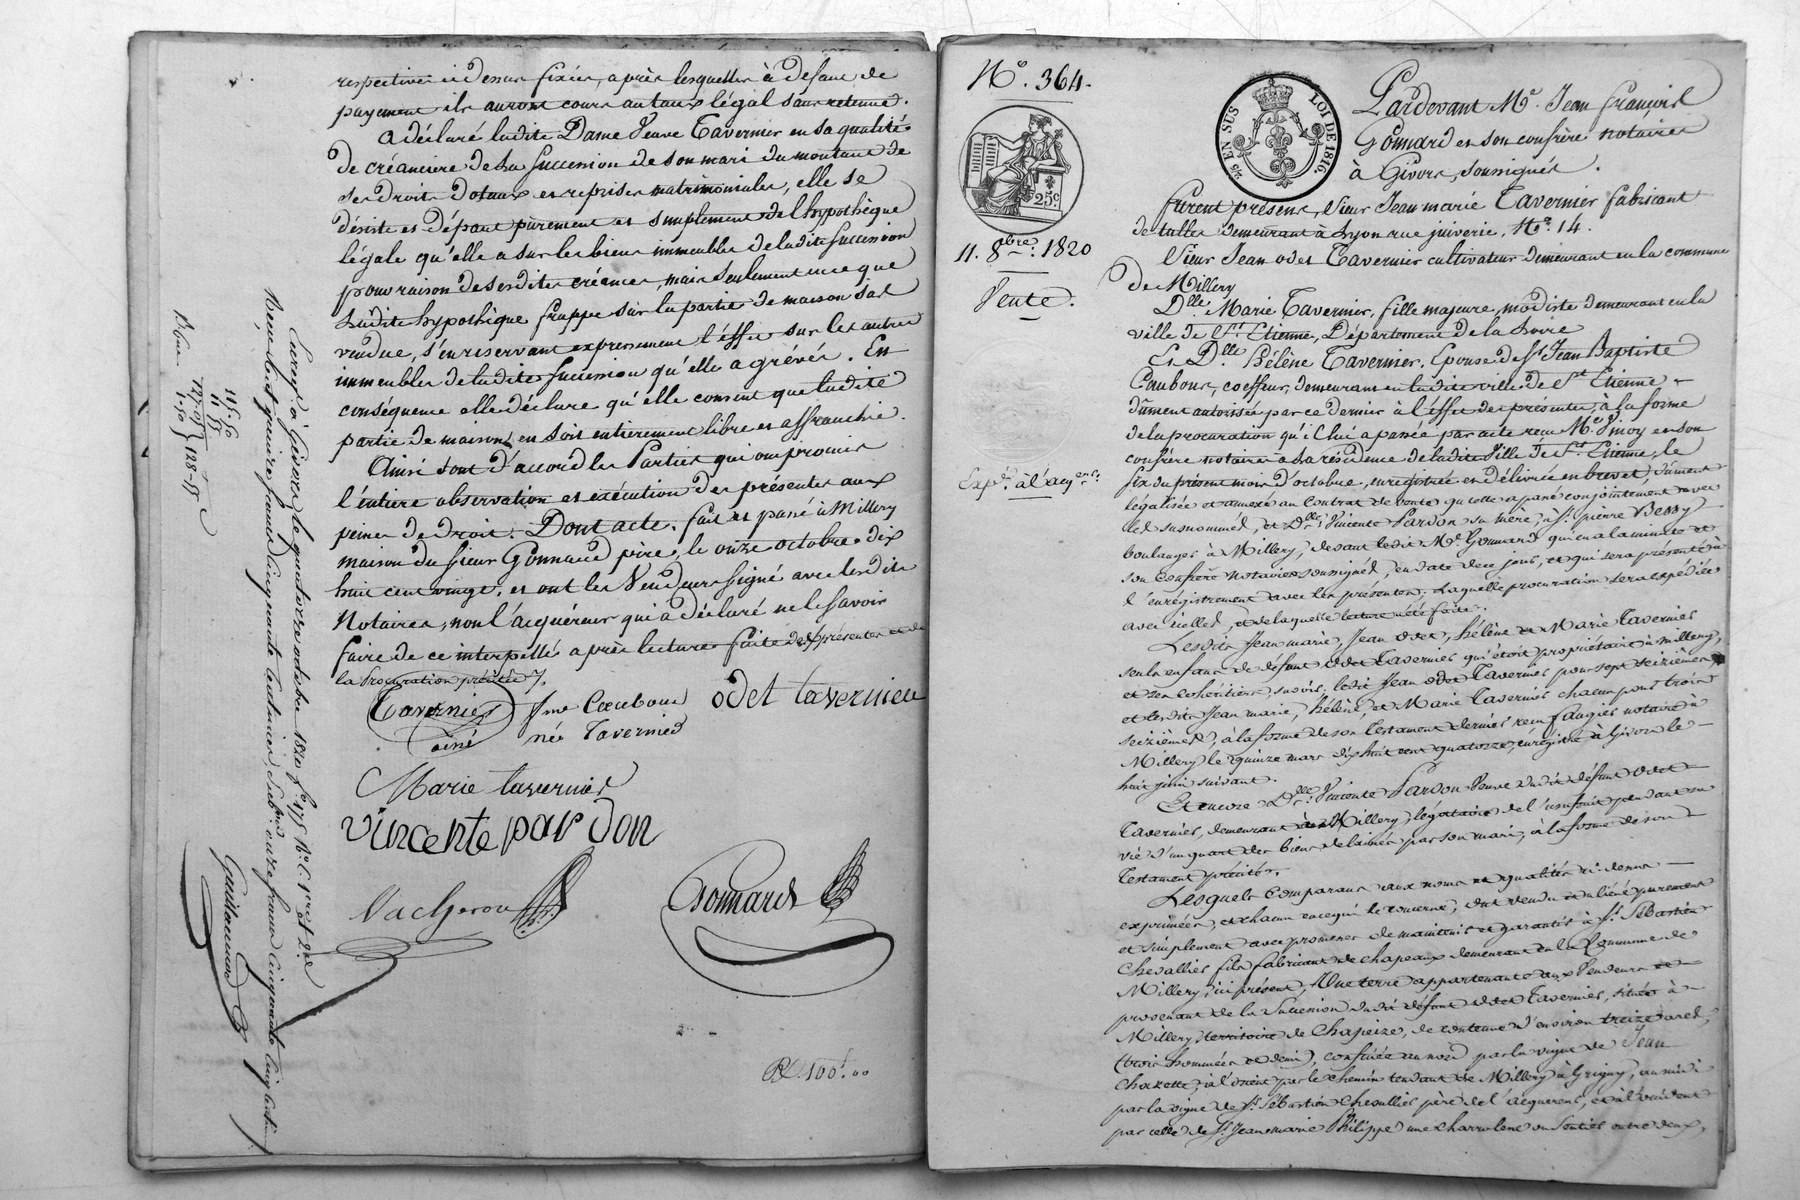 respectives ci dessus fixées, après lesquelles à défaut de
payement ils auront cours au taux légal sans retenue.
A déclaré ladite Dame Veuve Tavernier en sa qualité
de créancière de la succession de son mari du montant de
ses Droits Dotaux et reprises matrimoniales, elle se
désiste et départ purement et simplement de l'hypothèque
légale qu'elle a sur les biens immeubles de ladite succession
pour raison desdites créances, mais seulement en ce que
ladite hypothèque frappe sur la partie de maison sus
vendue, s'en réservant expressement l'effet sur les autres
immeubles de ladite succession qu'elle a grévés. En
conséquence elle déclare qu'elle consent que ladite
partie de maison, en soit entièrement libre et affranchie.
Ainsi sont d'accord les Parties qui ont promis
l'entière observation et exécution des présentes aux
peines de droit. Dont acte, fait et passé à Millery
maison du sieur Gonnard père, le onze octobre dix
huit cent vingt. et ont les Vendeurs signé avec lesdits
Notaires, non l'acquéreur qui a déclaré ne le savoir
faire de ce interpellé après lecture faite des présentes et de
la Procuration précitée
Tavernier
ainé
fme Caubour
née Tavernier
odet tavernieu
Marie tavernier
vincente pardon
Vacheron
Gonnard
Rl. 100f.00
Enreg. à Givors le quatorze octobre 1820 fo 175 Ro C. 1re et 2me
Reçu
Guillaumod
128-15
No. 364.
25 EN SUS
LOI DE 1816.
25 c
11. 8bre. 1820
Vente.
Expon. à l'acqer.
Pardevant Me. Jean françois
Gonnard et son confrère notaires
à Givors, soussignés.
furent présens, Sieur Jean marie Tavernier fabricant
de tulles demeurant à Lyon rue juiverie, No. 14.
Sieur Jean odet Tavernier cultivateur demeurant en la commune
de Millery
Dlle. Marie Tavernier, fille majeure, modiste demeurant en la
ville de St. Etienne, Département de la Loire
Et Dlle Hélène Tavernier, Epouse de Sr. Jean Baptiste
Caubour, coeffeur, demeurant en ladite ville de St. Etienne
dûment autorisée par ce dernier à l'effet des présentes, à la forme
de la procuration qu'il lui a passée par acte reçu Me. et son
confrère notaires à la résidence de ladite Ville de St. Etienne, le
six du présent mois d'octobre, enregistrée et délivrée en brevet, dûment
légalisée et annexée au Contrat de vente qu'elle a passé conjointement avec
les susnommés, et Dlle. Vincente Pardon sa mère, à Sr. pierre Bessy
boulanger à Millery, devant ledit Me. Gonnard qui en a la minute et
son confrère notaires soussignés, en date de ce jour, et qui sera présenté à
l'enrégistrement avec les présentes; laquelle procuration sera expédiée
avec icelles, et de laquelle lecture a été faite.
Lesdits Jean marie, Jean odet, Hélène et Marie Tavernier
seuls enfans de défunt odet Tavernier qui étoit propriétaire à Millery,
et ses cohéritiers, savoir: ledit Jean odet Tavernier pour sept seizièmes,
et lesdits Jean marie, Hélène, et Marie Tavernier chacun pour trois
seizièmes, à la forme de son testament dernier reçu faugier notaire à
Millery le quinze mars dix huit cent quatorze, enrégistré à Givors le
huit juin suivant.
Et encore Dlle. Vincente Pardon Veuve dudit défunt odet
Tavernier, demeurant à Millery, légataire de l'usufruit pendant sa
vie d'un quart des biens délaissés par son mari, à la forme de son
testament précité.
Lesquels Comparans aux noms et qualités ci-dessus
exprimées, et chacun en ce qui le concerne, ont vendu et aliéné purement
et simplement avec promesse de maintenir et garantir à Sr. Sébastien
Chevallier fils fabricant de chapeaux demeurant en la Commune de
Millery, ici présent, Une terre appartenante aux Vendeurs et
provenant de la succession dudit défunt odet Tavernier, située à
Millery, territoire de Chapeize, de contenue d'environ treize ares,
(trois hommées et demi), confinée au nord par la vigne de Jean
Chozette; à l'orient par le chemin tendant de Millery à Grigny, au midi
par la vigne de Sr. Sébastien Chevallier père de l'acquéreur, et à l'occident
par celle de Sr. Jean marie Philippe une charrolene ou Sentier entre deux,